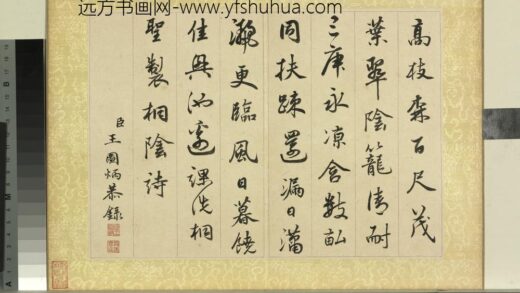 远方书画网-www.yfshuhua.com
高枝森百尺茂
葉翠陰籠清耐
三庚永凉含數畝
同扶踈還漏日瀟
灑更臨風日暮饒
佳興池邊課洗桐
聖製桐陰詩
臣王圖炳恭錄